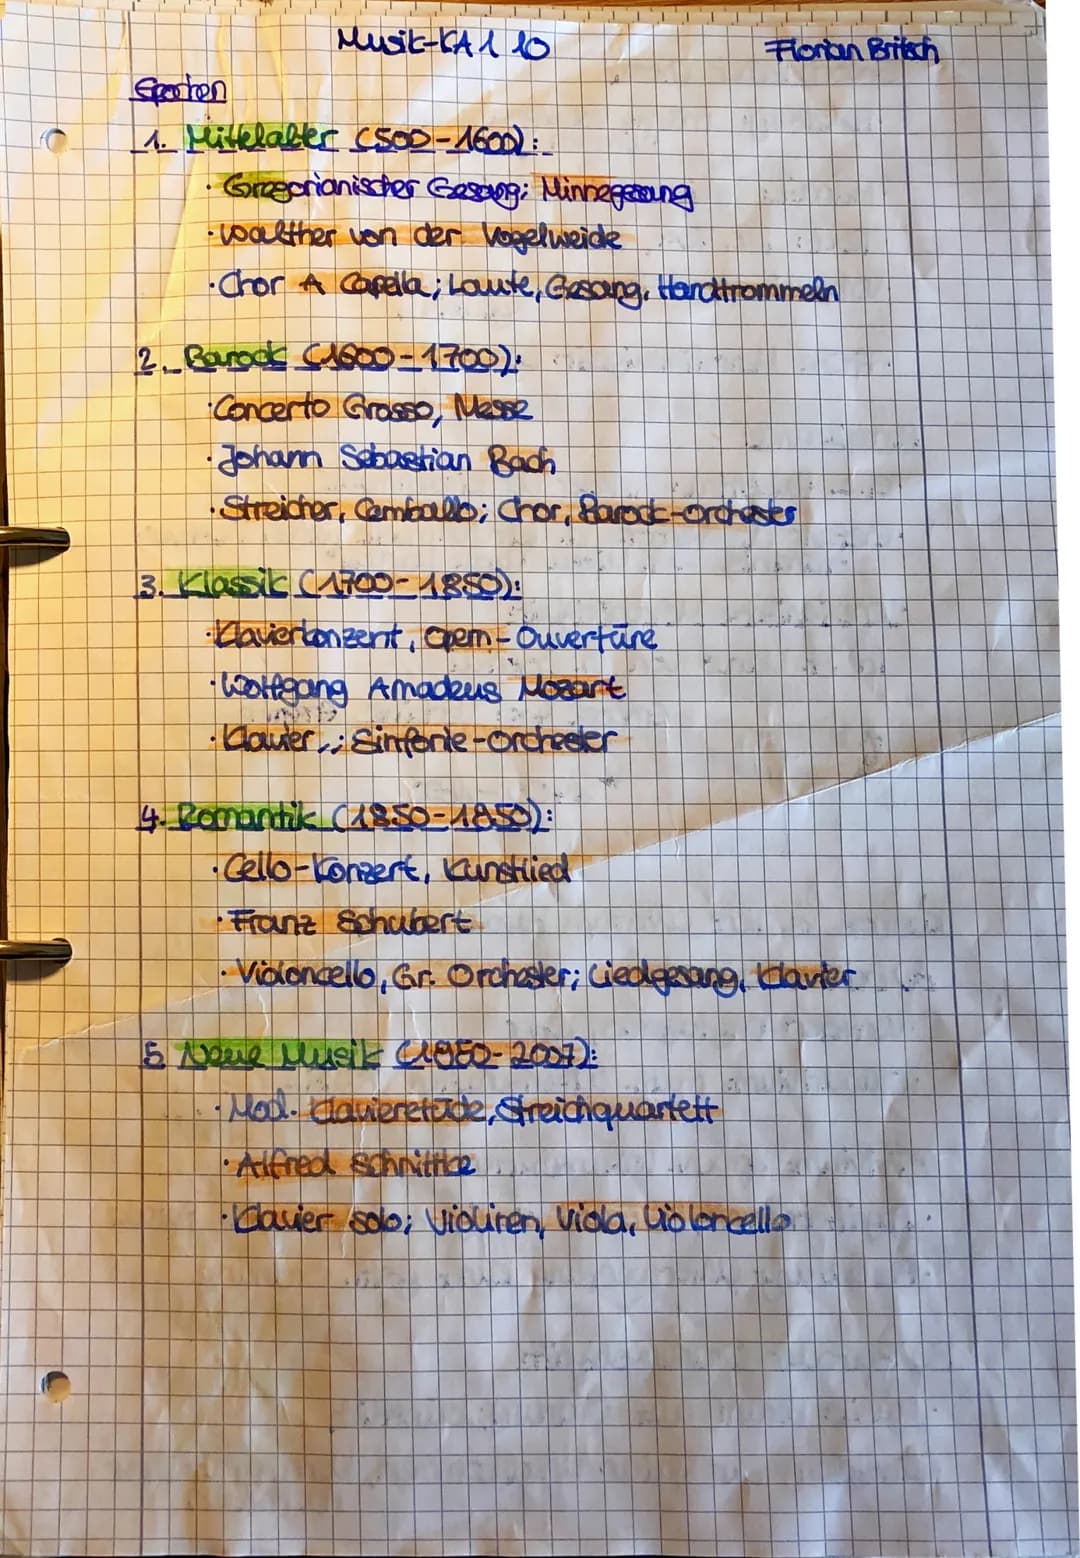 Musik-KA 1 10
Florian Britsch
Epochen
1. Mittelalter (500-1600):
· Gregorianischer Gesang; Minnegesang
· Walther von der Vogelweide
· Chor A Capella; Laute, Gesang, Handtrommeln
2. Barock (1600-1700):
· Concerto Grosso, Messe
· Johann Sebastian Bach
· Streicher, Cemballo; Chor, Barock-orchester
3. Klassik (1700-1850):
· Klavierkonzert, Opern-Ouvertüre
· Wolfgang Amadeus Mozart
· Klavier,; Sinfonie-orchester
4. Romantik (1850-1850):
· Cello-Konzert, Kunstlied
· Franz Schubert
· Violoncello, Gr. Orchester; Liedgesang, Klavier
5 Neue Musik (1950-2007):
· Mod. Klavieretüde, Streichquartett
· Alfred Schnittke
· Klavier solo; Violinen, Viola, Violoncello